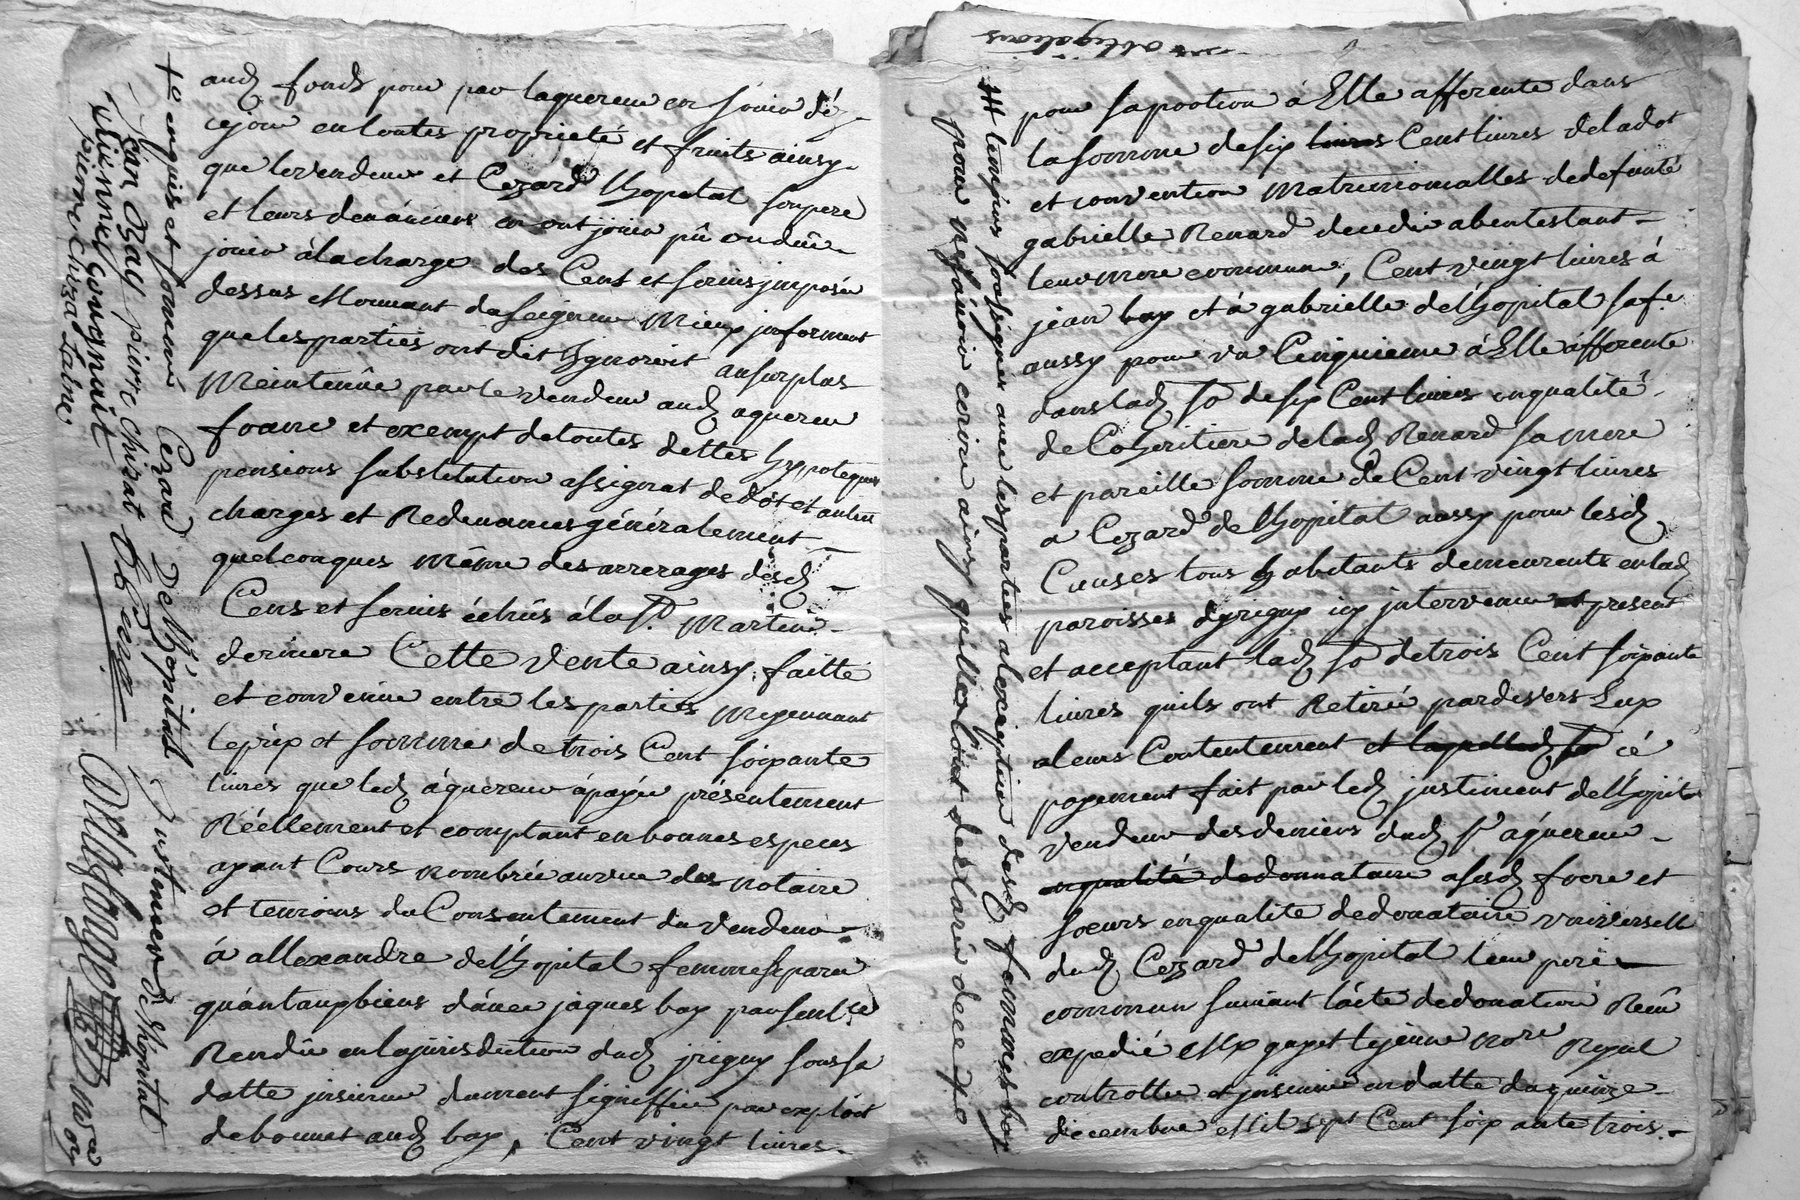 audt fonds pour par laquereur en jouir déz
cejour en toutes proprieté et fruits ainsy
que le vendeur et Cezard Lhopital son pere
et leurs devanciers en ont jouir pû ou dûe
jouir àla charge des Cens et servis imposéz
dessus et mouvant du seigneur Mieux informent
que les parties ont dit Ignoroit au surplus
Meintenûe par le vendeur audt aquereur
franc et exempt de toutes dettes hypoteques
pensions substitution assignat de dot et autres
charges et Redevances généralement
quelconques Même des arrerages desdt
Cens et servis échûs àla st Martin
derniere Cette vente ainsy faitte
et convenüe entre les parties Moyennant
le prix et somme de trois Cent soixante
livres que ledt áquéreur ápayée présentement
Réellement et comptant en bonnes especes
ayant Cours nombrée au vue des notaire
et temoins du Consentement du vendeur
á allexandre delhopital femme separée
quánt aux biens d'avec jaques bay par sentce
Rendüe en la jurisdiction dudt jrigny sous sa
datte jnserée dument signiffiée par exploit
de bonnet audt bay, Cent vingt livres
+ enquis et sommé Cezard Delhôpital Justinien de lhopital
Jean Bay pierre chirat
etiennet convanuit
pierre chirat Laine
pour sa portion á Elle afferente dans
la somme de six livres Cent livres de la dot
et convention Matrimonialles de defunte
gabrielle Renard decedée abintestant
leur mere commune, Cent vingt livres á
jean bay et á gabrielle delhopital sa fe
aussy pour un Cinquieme á Elle afferente
dans ladt so de six Cent livres enqualité
de Coheritiere de ladt Renard sa mere
et pareille somme de Cent vingt livres
a Cezard de lhopital aussy pour lesdt
Causes tous habitants demeurents en ladt
paroisses djrigny icy jntervenu et present
et acceptant ladt so de trois Cent soixante
livres quils ont Retirée pardevers Eux
a leurs Contentement et laquelledt so cé
payement fait par ledt justinient delhopital
vendeur des deniers dudt sr aquereur
enqualité de donnataire a sesdt frere et
soeurs en qualité de donataire universelle
dudt Cezard delhopital leur pere
commun suivant lácte de donation Reçu
expedié Mx guyot lejeune nore Royal
controlle et jnsinué en datte du quinze
decembre Mil sept Cent soix ante trois
# temoins soussignés avec les parties alexception desdt femmes bay
pour ne sçavoir écrire ainsy quelles lont declarée de ce
obligations